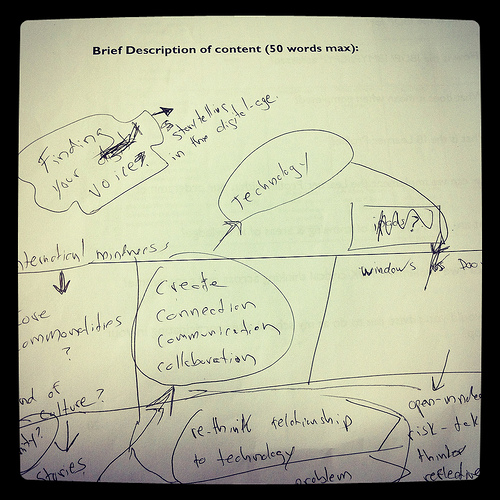 Brief Description of content (50 words max):
Finding
your
voice?
storytelling
in the digital-age.
Technology
ipads?
international mindness
Windows
Doo
Create
connection
communication
collaboration
love
commonalities
?
nd of
culture?
stories
re-think relationship
to technology
problem
open-minded
risk-tak
thinker
reflective